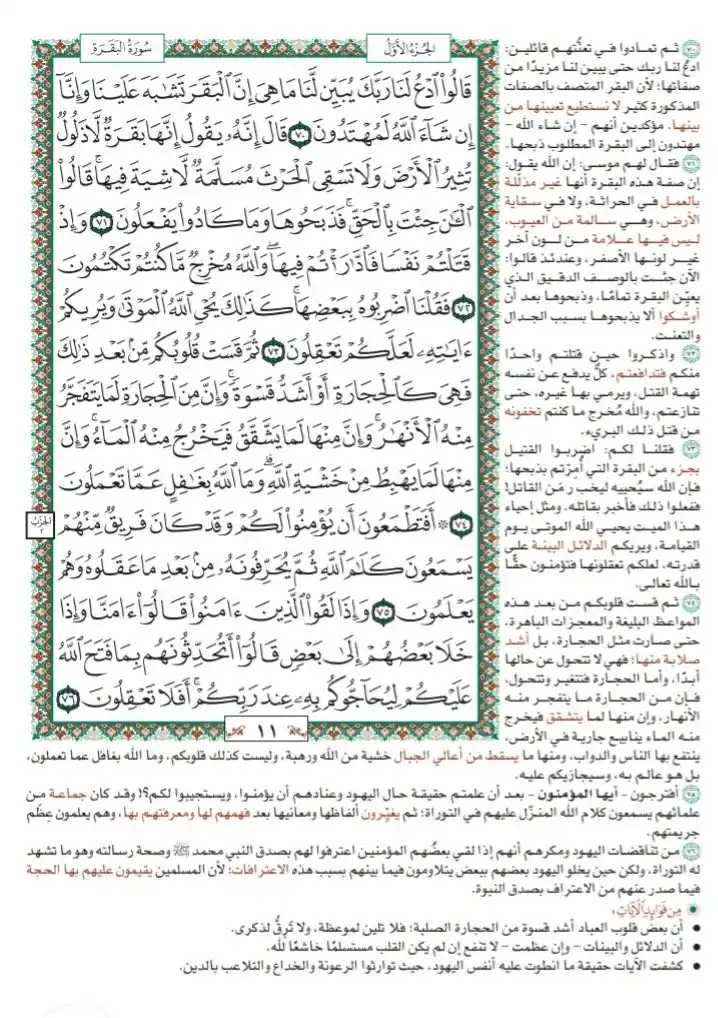 سُورَةُ البَقَرَةِ
الجُزْءُ الأَوَّلُ
قَالُوا۟ ٱدْعُ لَنَا رَبَّكَ يُبَيِّن لَّنَا مَا هِىَ إِنَّ ٱلْبَقَرَ تَشَٰبَهَ عَلَيْنَا وَإِنَّآ
إِن شَآءَ ٱللَّهُ لَمُهْتَدُونَ ٧٠ قَالَ إِنَّهُۥ يَقُولُ إِنَّهَا بَقَرَةٌ لَّا ذَلُولٌ
تُثِيرُ ٱلْأَرْضَ وَلَا تَسْقِى ٱلْحَرْثَ مُسَلَّمَةٌ لَّا شِيَةَ فِيهَا ۚ قَالُوا۟
ٱلْـَٰٔنَ جِئْتَ بِٱلْحَقِّ ۚ فَذَبَحُوهَا وَمَا كَادُوا۟ يَفْعَلُونَ ٧١ وَإِذْ
قَتَلْتُمْ نَفْسًا فَٱدَّٰرَْٰٔتُمْ فِيهَا ۖ وَٱللَّهُ مُخْرِجٌ مَّا كُنتُمْ تَكْتُمُونَ
٧٢ فَقُلْنَا ٱضْرِبُوهُ بِبَعْضِهَا ۚ كَذَٰلِكَ يُحْىِ ٱللَّهُ ٱلْمَوْتَىٰ وَيُرِيكُمْ
ءَايَٰتِهِۦ لَعَلَّكُمْ تَعْقِلُونَ ٧٣ ثُمَّ قَسَتْ قُلُوبُكُم مِّنۢ بَعْدِ ذَٰلِكَ
فَهِىَ كَٱلْحِجَارَةِ أَوْ أَشَدُّ قَسْوَةً ۚ وَإِنَّ مِنَ ٱلْحِجَارَةِ لَمَا يَتَفَجَّرُ
مِنْهُ ٱلْأَنْهَٰرُ ۚ وَإِنَّ مِنْهَا لَمَا يَشَّقَّقُ فَيَخْرُجُ مِنْهُ ٱلْمَآءُ ۚ وَإِنَّ
مِنْهَا لَمَا يَهْبِطُ مِنْ خَشْيَةِ ٱللَّهِ ۗ وَمَا ٱللَّهُ بِغَٰفِلٍ عَمَّا تَعْمَلُونَ
٧٤ ۞ أَفَتَطْمَعُونَ أَن يُؤْمِنُوا۟ لَكُمْ وَقَدْ كَانَ فَرِيقٌ مِّنْهُمْ
يَسْمَعُونَ كَلَٰمَ ٱللَّهِ ثُمَّ يُحَرِّفُونَهُۥ مِنۢ بَعْدِ مَا عَقَلُوهُ وَهُمْ
يَعْلَمُونَ ٧٥ وَإِذَا لَقُوا۟ ٱلَّذِينَ ءَامَنُوا۟ قَالُوٓا۟ ءَامَنَّا وَإِذَا
خَلَا بَعْضُهُمْ إِلَىٰ بَعْضٍ قَالُوٓا۟ أَتُحَدِّثُونَهُم بِمَا فَتَحَ ٱللَّهُ
عَلَيْكُمْ لِيُحَآجُّوكُم بِهِۦ عِندَ رَبِّكُمْ ۚ أَفَلَا تَعْقِلُونَ ٧٦
١١
الحزب
٢
٧٠ ثم تمادوا في تعنُّتهم قائلين:
ادعُ لنا ربك حتى يبين لنا مزيدًا من
صفاتها؛ لأن البقر المتصف بالصفات
المذكورة كثير لا نستطيع تعيينها من
بينها. مؤكدين أنهم - إن شاء الله -
مهتدون إلى البقرة المطلوب ذبحها.
٧١ فقال لهم موسى: إن الله يقول:
إن صفة هذه البقرة أنها غير مذلَّلة
بالعمل في الحراثة، ولا في سقاية
الأرض، وهي سالمة من العيوب،
ليس فيها علامة من لون آخر
غير لونها الأصفر، وعندئذ قالوا:
الآن جئت بالوصف الدقيق الذي
يعيّن البقرة تمامًا، وذبحوها بعد أن
أوشكوا ألا يذبحوها بسبب الجدال
والتعنت.
٧٢ واذكروا حين قتلتم واحدًا
منكم فتدافعتم، كلٌّ يدفع عن نفسه
تهمة القتل، ويرمي بها غيره، حتى
تنازعتم، والله مُخرج ما كنتم تخفونه
من قتل ذلك البريء.
٧٣ فقلنا لكم: اضربوا القتيل
بجزء من البقرة التي أُمِرْتم بذبحها؛
فإن الله سيُحييه ليخبر مَن القاتل!
ففعلوا ذلك فأخبر بقاتله. ومثل إحياء
هذا الميت يحيي الله الموتى يوم
القيامة، ويريكم الدلائل البينة على
قدرته، لعلكم تعقلونها فتؤمنون حقًّا
بالله تعالى.
٧٤ ثم قست قلوبكم من بعد هذه
المواعظ البليغة والمعجزات الباهرة،
حتى صارت مثل الحجارة، بل أشد
صلابة منها؛ فهي لا تتحول عن حالها
أبدًا، وأما الحجارة فتتغير وتتحول،
فإن من الحجارة ما يتفجر منه
الأنهار، وإن منها لما يتشقق فيخرج
منه الماء ينابيع جارية في الأرض،
ينتفع بها الناس والدواب، ومنها ما يسقط من أعالي الجبال خشية من الله ورهبة، وليست كذلك قلوبكم، وما الله بغافل عما تعملون،
بل هو عالم به، وسيجازيكم عليه.
٧٥ أفترجون - أيها المؤمنون - بعد أن علمتم حقيقة حال اليهود وعنادهم أن يؤمنوا، ويستجيبوا لكم؟! وقد كان جماعة من
علمائهم يسمعون كلام الله المنزّل عليهم في التوراة؛ ثم يغيّرون ألفاظها ومعانيها بعد فهمهم لها ومعرفتهم بها، وهم يعلمون عِظَم
جريمتهم.
٧٦ من تناقضات اليهود ومكرهم أنهم إذا لقي بعضُهم المؤمنين اعترفوا لهم بصدق النبي محمد ﷺ وصحة رسالته وهو ما تشهد
له التوراة، ولكن حين يخلو اليهود بعضهم ببعض يتلاومون فيما بينهم بسبب هذه الاعترافات؛ لأن المسلمين يقيمون عليهم بها الحجة
فيما صدر عنهم من الاعتراف بصدق النبوة.
● مِن فَوَائِدِ الآيَاتِ:
• أن بعض قلوب العباد أشد قسوة من الحجارة الصلبة؛ فلا تلين لموعظة، ولا تَرِقُّ لذكرى.
• أن الدلائل والبينات - وإن عظمت - لا تنفع إن لم يكن القلب مستسلمًا خاشعًا لله.
• كشفت الآيات حقيقة ما انطوت عليه أنفس اليهود، حيث توارثوا الرعونة والخداع والتلاعب بالدين.